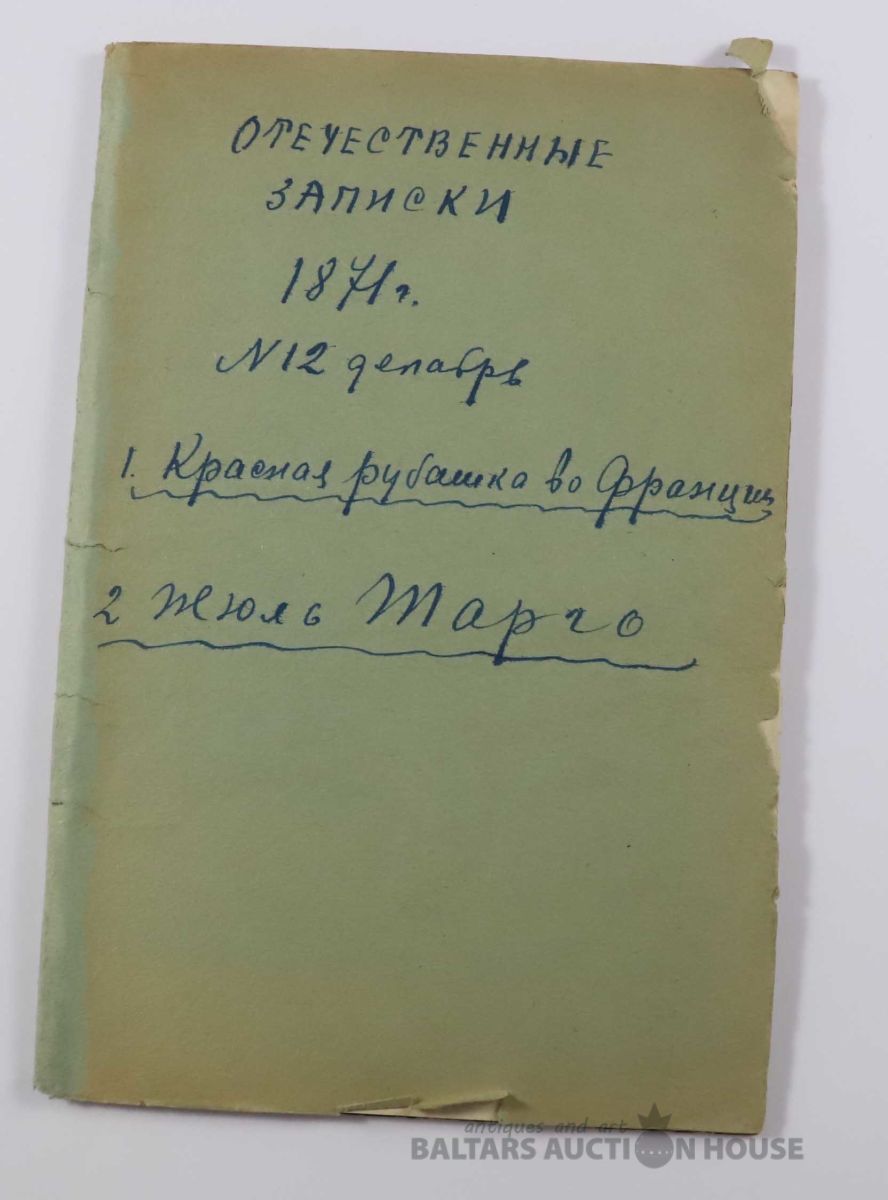 ОТЕЧЕСТВЕННЫЕ
ЗАПИСКИ
1871 г.
N 12 декабрь
1. Красная рубашка во Франции
2 Жюль Жарго
antiques and art
BALTARS AUCTION HOUSE